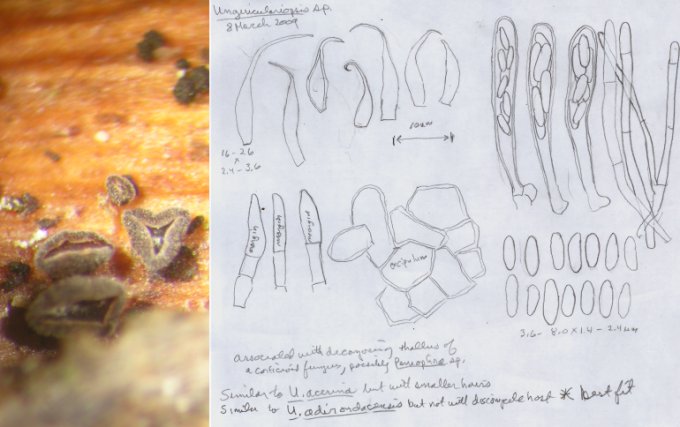 Unguiculariopsis sp.
8 March 2009
10 um
16 - 26
x
2.4 - 3.6
margin
margin
margin
excipulum
3.6 - 8.0 x 1.4 - 2.4 um
associated with decomposing thallus of
a corticioid fungus, possibly Peniophora sp.
Similar to U. acerina but with smaller hairs
Similar to U. adirondacensis but not with discomycete host * best fit